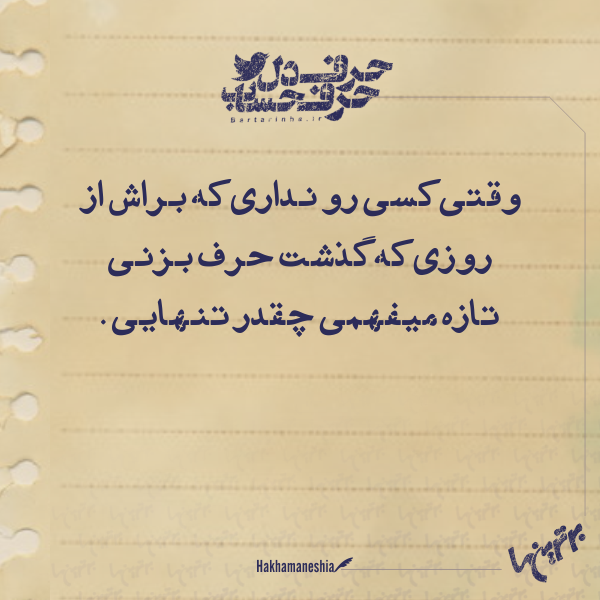 حرف دل
حرف حساب
Bartarinha.ir
وقتی کسی رو نداری که براش از
روزی که گذشت حرف بزنی
تازه میفهمی چقدر تنهایی.
Hakhamaneshia
برترینها